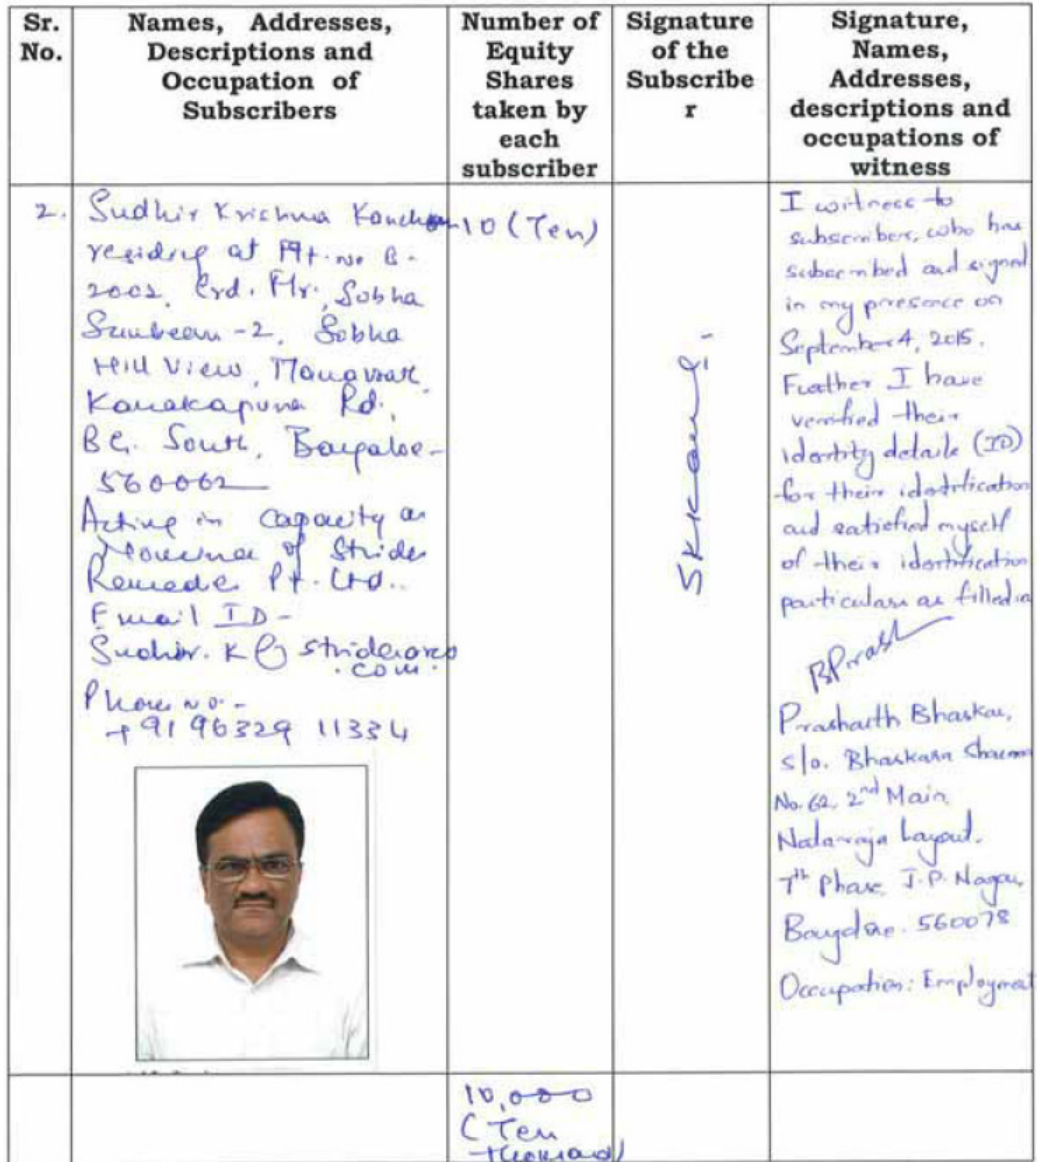 Sr.
No.
Names, Addresses,
Descriptions and
Occupation of
Subscribers
Number of
Equity
Shares
taken by
each
subscriber
Signature
of the
Subscribe
r
Signature,
Names,
Addresses,
descriptions and
occupations of
witness
2.
Sudhir Krishna
residing at Flt. no B-
2002, Flr, Sobha
-2, Sobha
Hill View,
Kanakapura Rd,
BG. South, Bangalore-
560062
Acting in capacity as
Nominee of Strides
Pt. Ltd..
Email ID-
Phone no.-
+91 96329 11334
10 (Ten)
I witness to
subscriber, who has
subscribed and signed
in my presence on
September 4, 2015.
Further I have
verified their
identity details (ID)
for their identification
and satisfied myself
of their identification
particulars as filled in
Prashanth Bhaskar,
S/o. Bhaskara
No. 62, 2nd Main,
Nataraja Layout,
7th Phase, J.P. Nagar,
Bangalore. 560078
Occupation: Employment
10,000
(Ten
thousand)